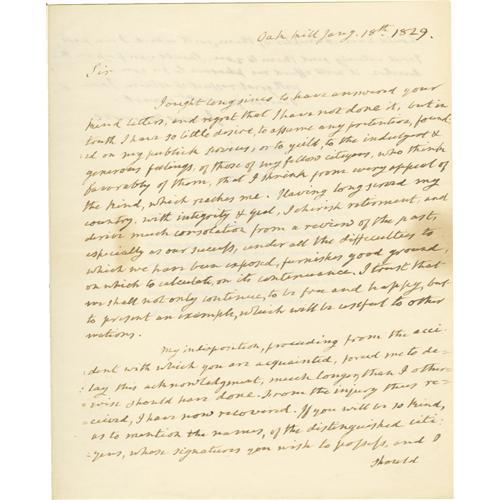 Oak Hill Jany. 18th 1829.
Sir
I ought long since to have answered your
kind letters, and regret that I have not done it, but in
truth I have so little desire, to assume any pretention, found
ed on my publick services, or to yield, to the indulgent &
generous feelings, of those of my fellow citizens, who think
favorably of them, that I shrink from every appeal of
the kind, which reaches me. Having long served my
country, with integrity & zeal, I cherish retirment, and
derive much consolation from a review of the past,
especially as our success, under all the difficulties to
which we have been exposed, furnishes good ground,
on which to calculate, on its continuance. I trust that
we shall not only continue, to be free and happy, but
to present an example, which will be useful to other
nations.
My indisposition, proceeding from the acci
dent with which you are acquainted, forced me to de=
lay this acknowledgment, much longer, than I other=
wise should have done. From the injury thus re=
ceived, I have now recovered. If you will be so kind,
as to mention the names, of the distinguished citi=
zens, whose signatures you wish to possess, and I
should